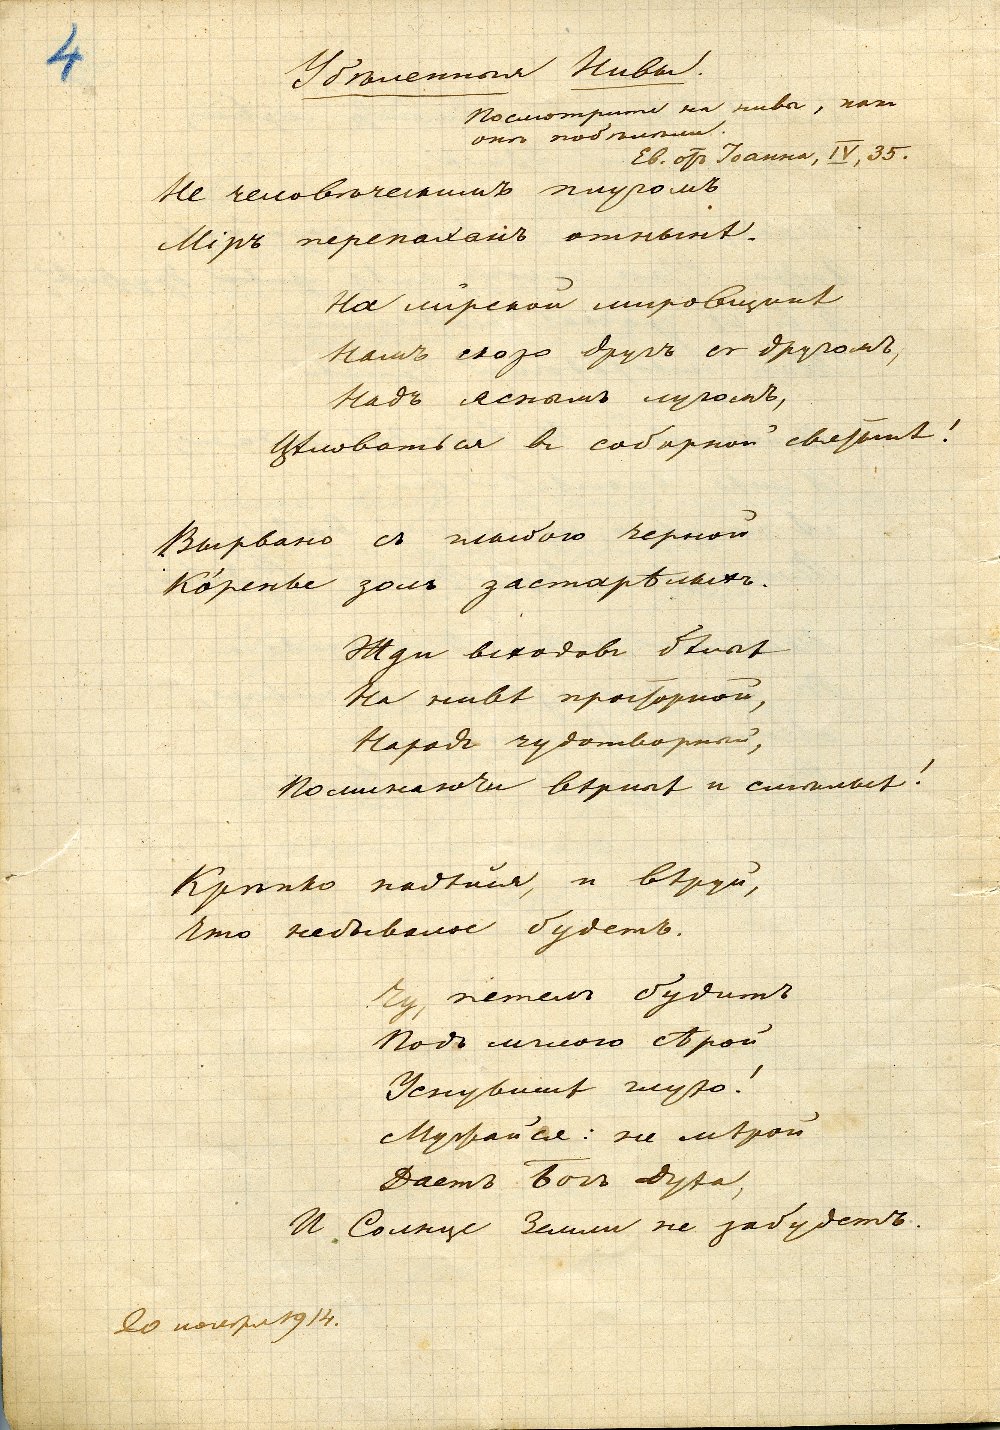 4
Убѣленныя Нивы.
Посмотрите на нивы, какъ
онѣ побѣлѣли.
Ев. отъ Іоанна, IV, 35.
Не человѣческимъ плугомъ
Міръ перепаханъ отнынѣ.
На мірской мировщинѣ
Намъ скоро другъ съ другомъ,
Надъ яснымъ лугомъ,
Цѣловаться въ соборной святынѣ!
Вырвано съ глыбою черной
Ко́ренье золъ застарѣлыхъ.
Жди всходовъ бѣлыхъ
На нивѣ просторной,
Народъ чудотворный,
Поминаючи вѣрныхъ и смѣлыхъ!
Крѣпко надѣйся, и вѣруй,
Что небывалое будетъ.
Чу, пѣтелъ будитъ
Подъ мглою сѣрой
Уснувшихъ глухо!
Мужайся: не мѣрой
Дастъ Богъ духа,
И Солнце Земли не забудетъ.
20 ноября 1914.